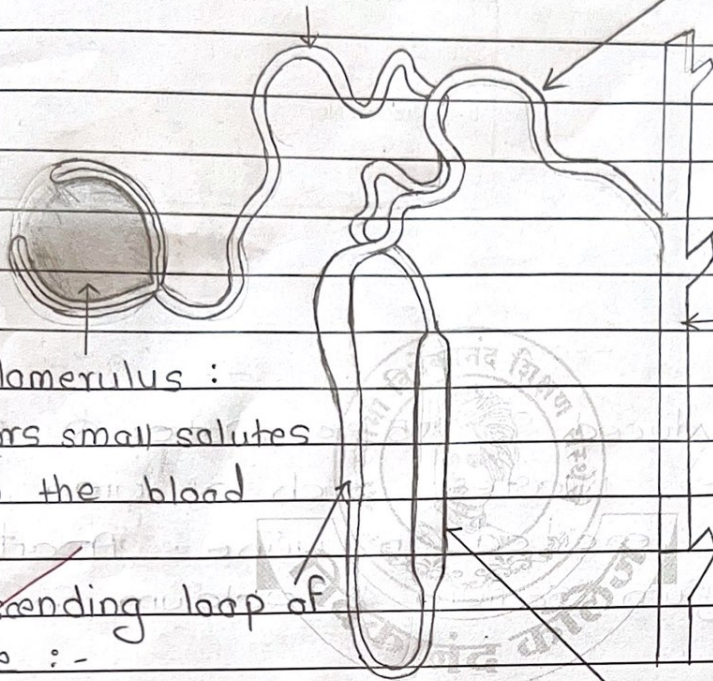 lomerulus :
rs small solutes
the blood
cending loop of
e :-
शिक्षण
कॉलेज